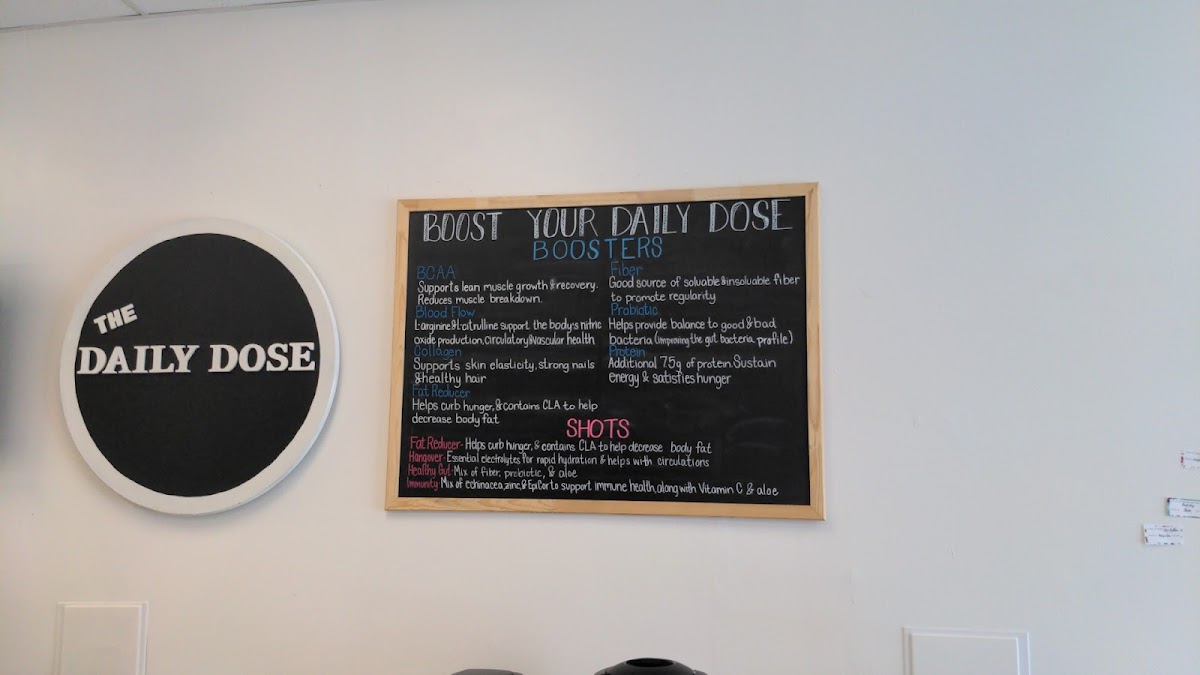 THE
DAILY DOSE
BOOST YOUR DAILY DOSE
BOOSTERS
BCAA
Supports lean muscle growth & recovery.
Reduces muscle breakdown.
Blood Flow
L-arginine & L-citrulline support the body's nitric
oxide production, circulatory & vascular health
Collagen
Supports skin elasticity, strong nails
& healthy hair
Fat Reducer
Helps curb hunger, & contains CLA to help
decrease body fat
Fiber
Good source of soluable & insoluable fiber
to promote regularity
Probiotic
Helps provide balance to good & bad
bacteria (improving the gut bacteria profile)
Protein
Additional 7.5g of protein. Sustain
energy & satisfies hunger
SHOTS
Fat Reducer- Helps curb hunger, & contains CLA to help decrease body fat
Hangover- Essential electrolytes for rapid hydration & helps with circulations
Healthy Gut- Mix of fiber, probiotic, & aloe
Immunity- Mix of echinacea, zinc, & EpiCor to support immune health, along with Vitamin C & aloe